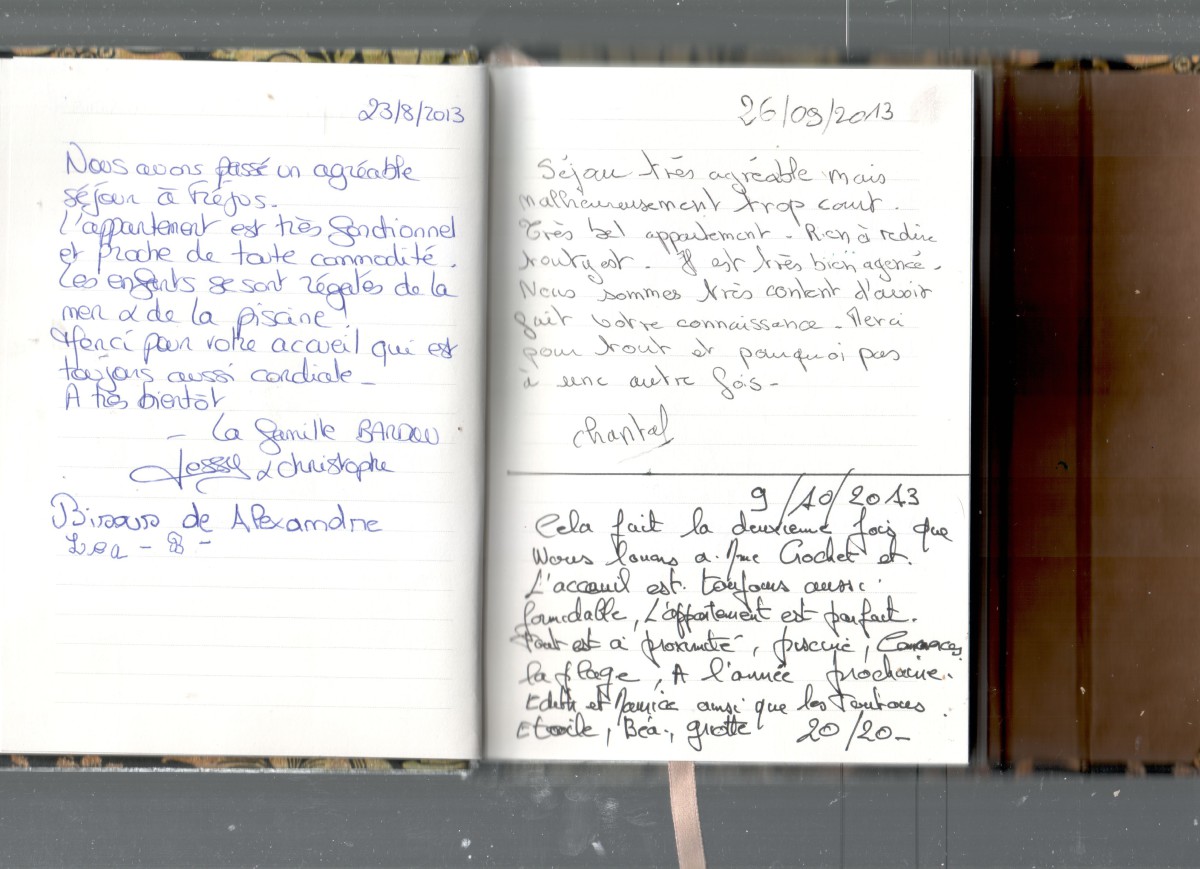 23/8/2013
Nous avons passé un agréable
séjour à Fréjus.
L'appartement est très fonctionnel
et proche de toute commodité.
Les enfants se sont régalés de la
mer & de la piscine !
Merci pour votre accueil qui est
toujours aussi cordiale -
A très bientôt
- La famille BARDOU
Jessy & christophe
Bisous de Alexandre
Léa - -
26/09/2013
Séjour très agréable mais
malheureusement trop court.
Très bel appartement - Rien à redire
tout y est. Il est très bien agencé.
Nous sommes très content d'avoir
fait votre connaissance - Merci
pour tout et pourquoi pas
à une autre fois -
Chantal
9/10/2013
Cela fait la deuxieme fois que
Nous louons a Mme Crochet et
L'acceuil est toujours aussi
formidable, L'appartement est parfait.
Tout est a proximité, piscine,
la plage, A l'année prochaine.
Edith et ainsi que les toutous
Etoile, Béa, 20/20 -